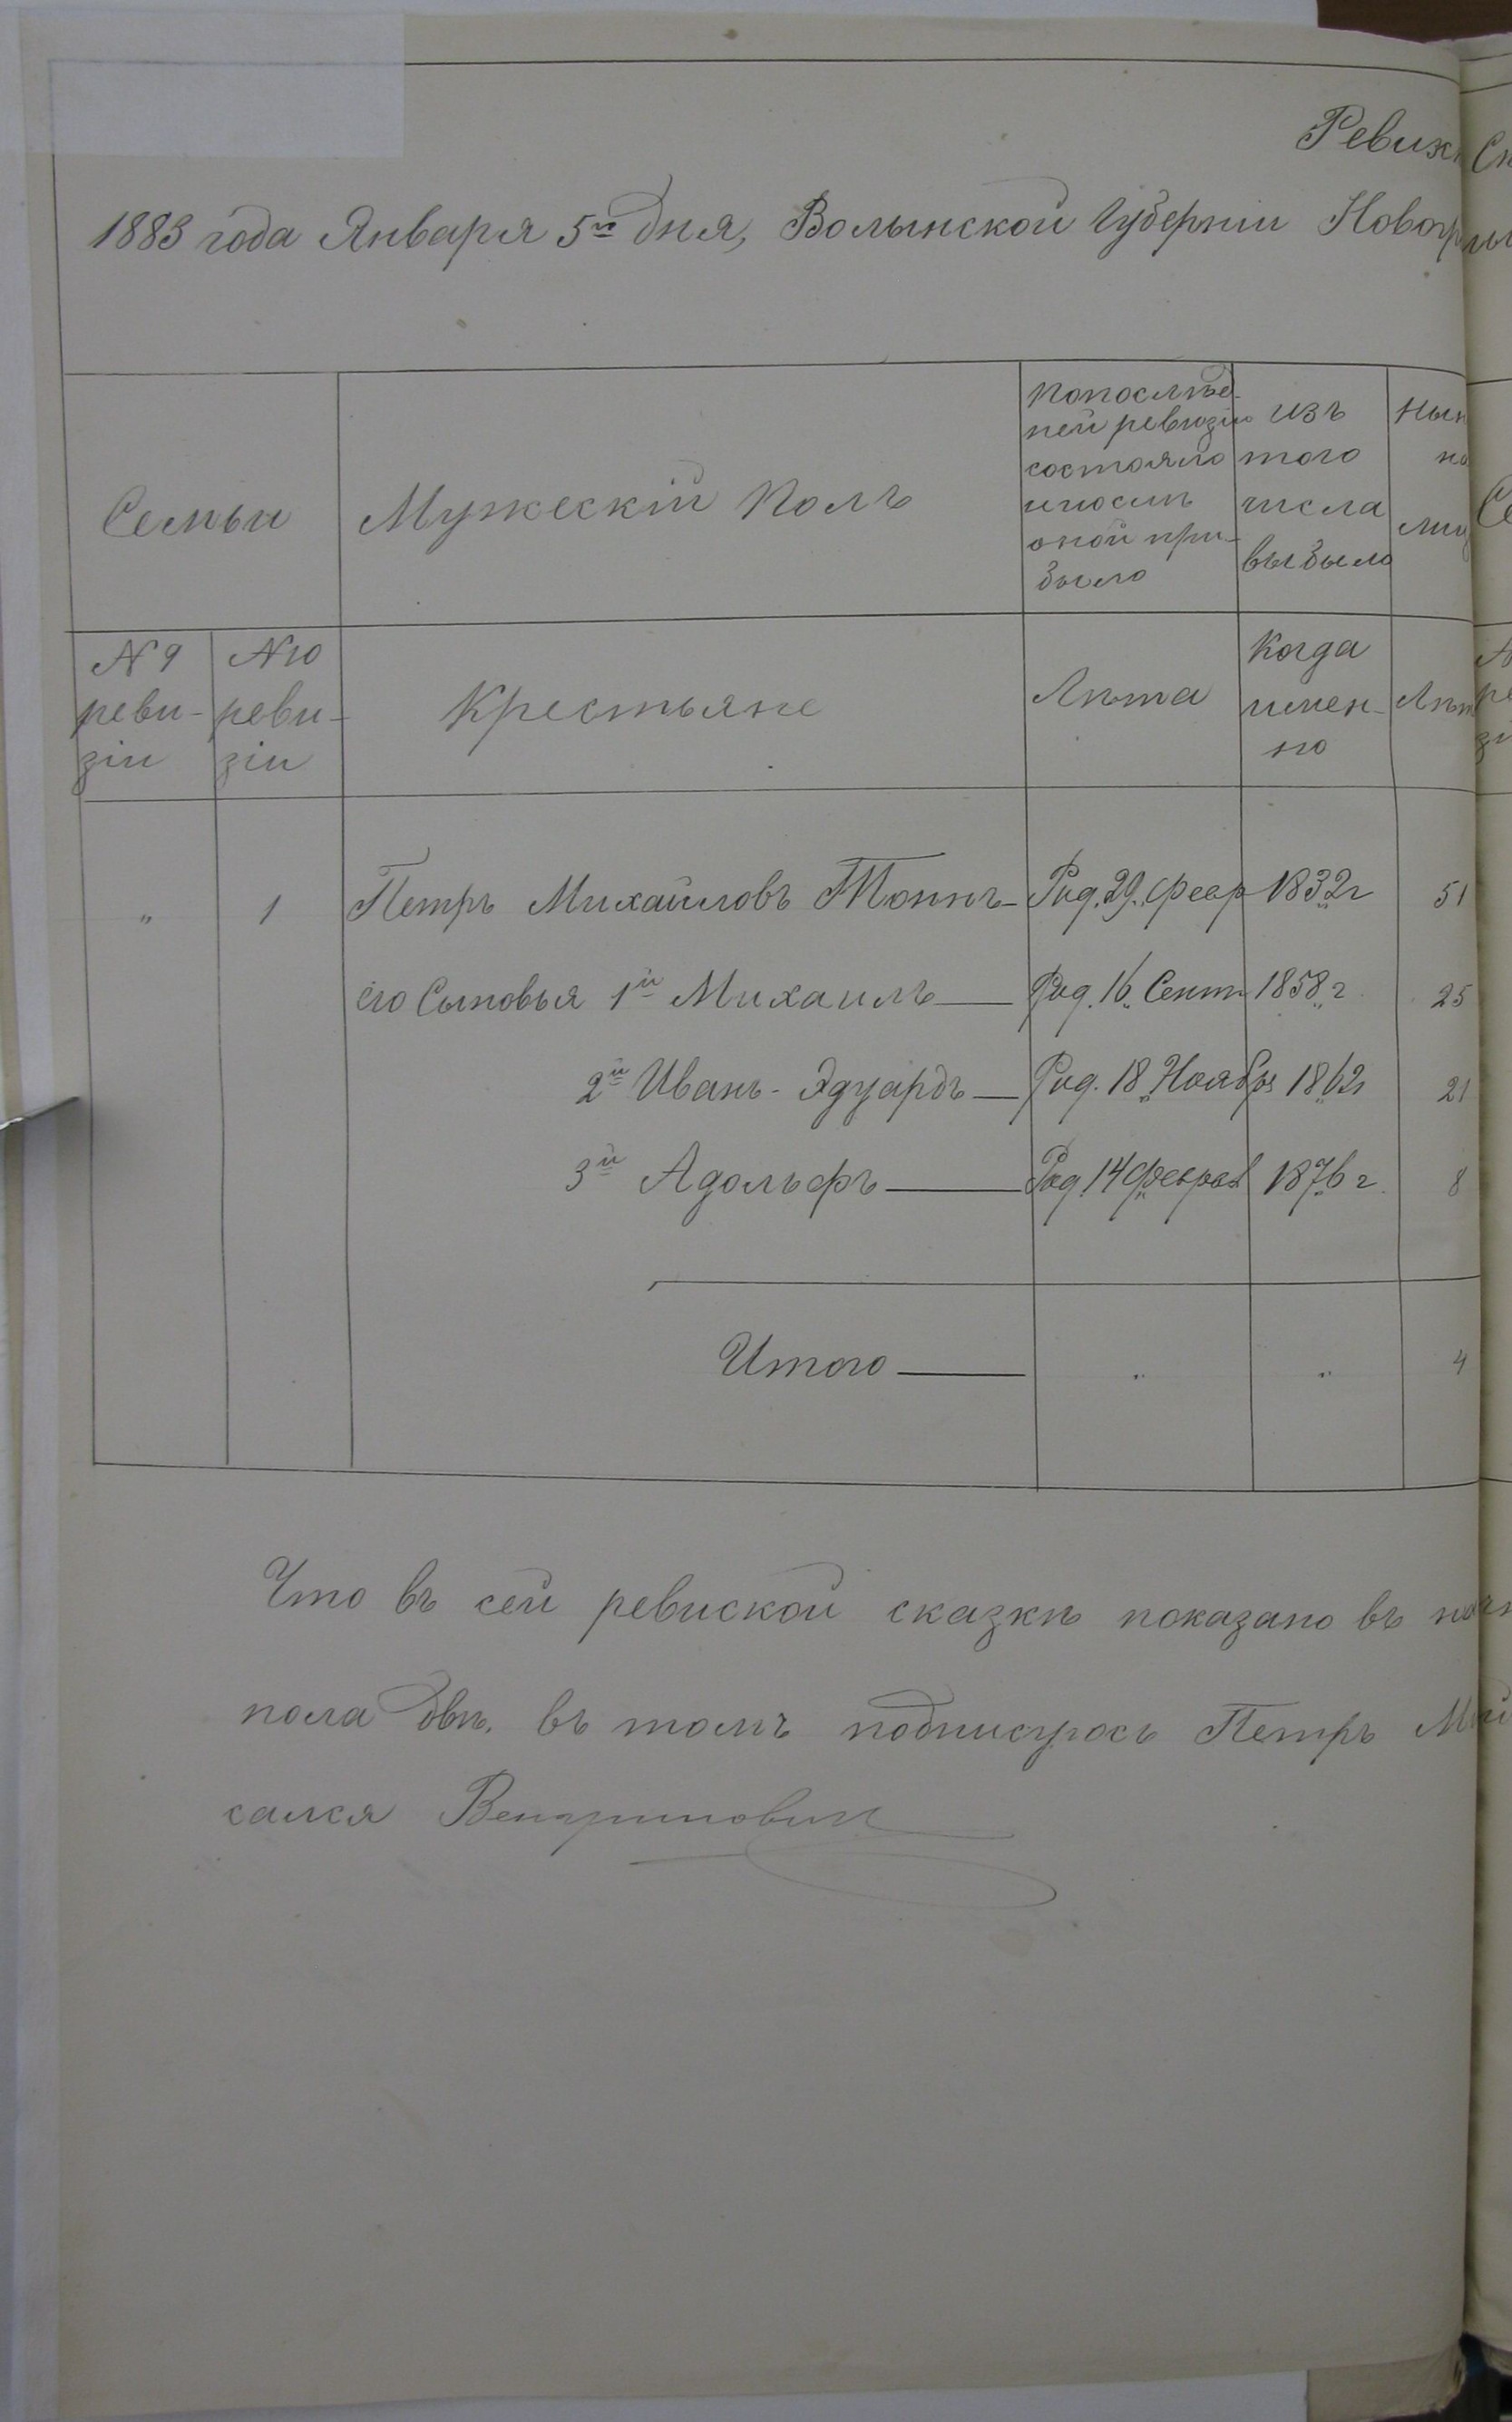 Ревиж
1883 года Января 5го дня, Волынской Губернии Новогр
Семьи
Мужескій Полъ
Попослѣд-
ней ревизіи
состояло
ипослѣ
оной при-
было
изъ
того
числа
выбыло
Нын
на
лиц
№ 9
реви-
зіи
№ 10
реви-
зіи
Крестьяне
Лѣта
Когда
имен-
но
Лѣт
„ 1 Петръ Михайловъ Тоннъ- Род. 29. Февр 1832 г 51
его Сыновья 1й Михаилъ Род. 16 Сент 1858 г. 25
2й Иванъ-Эдуардъ Род. 18 Ноября 1862 г 21
3й Адольфъ Род 14 Феврал 1876 г. 8
Итого „ „ 4
Что въ сей ревиской сказкѣ показано въ
пола двѣ. въ томъ подписуюсь Петръ
сался Венгринович